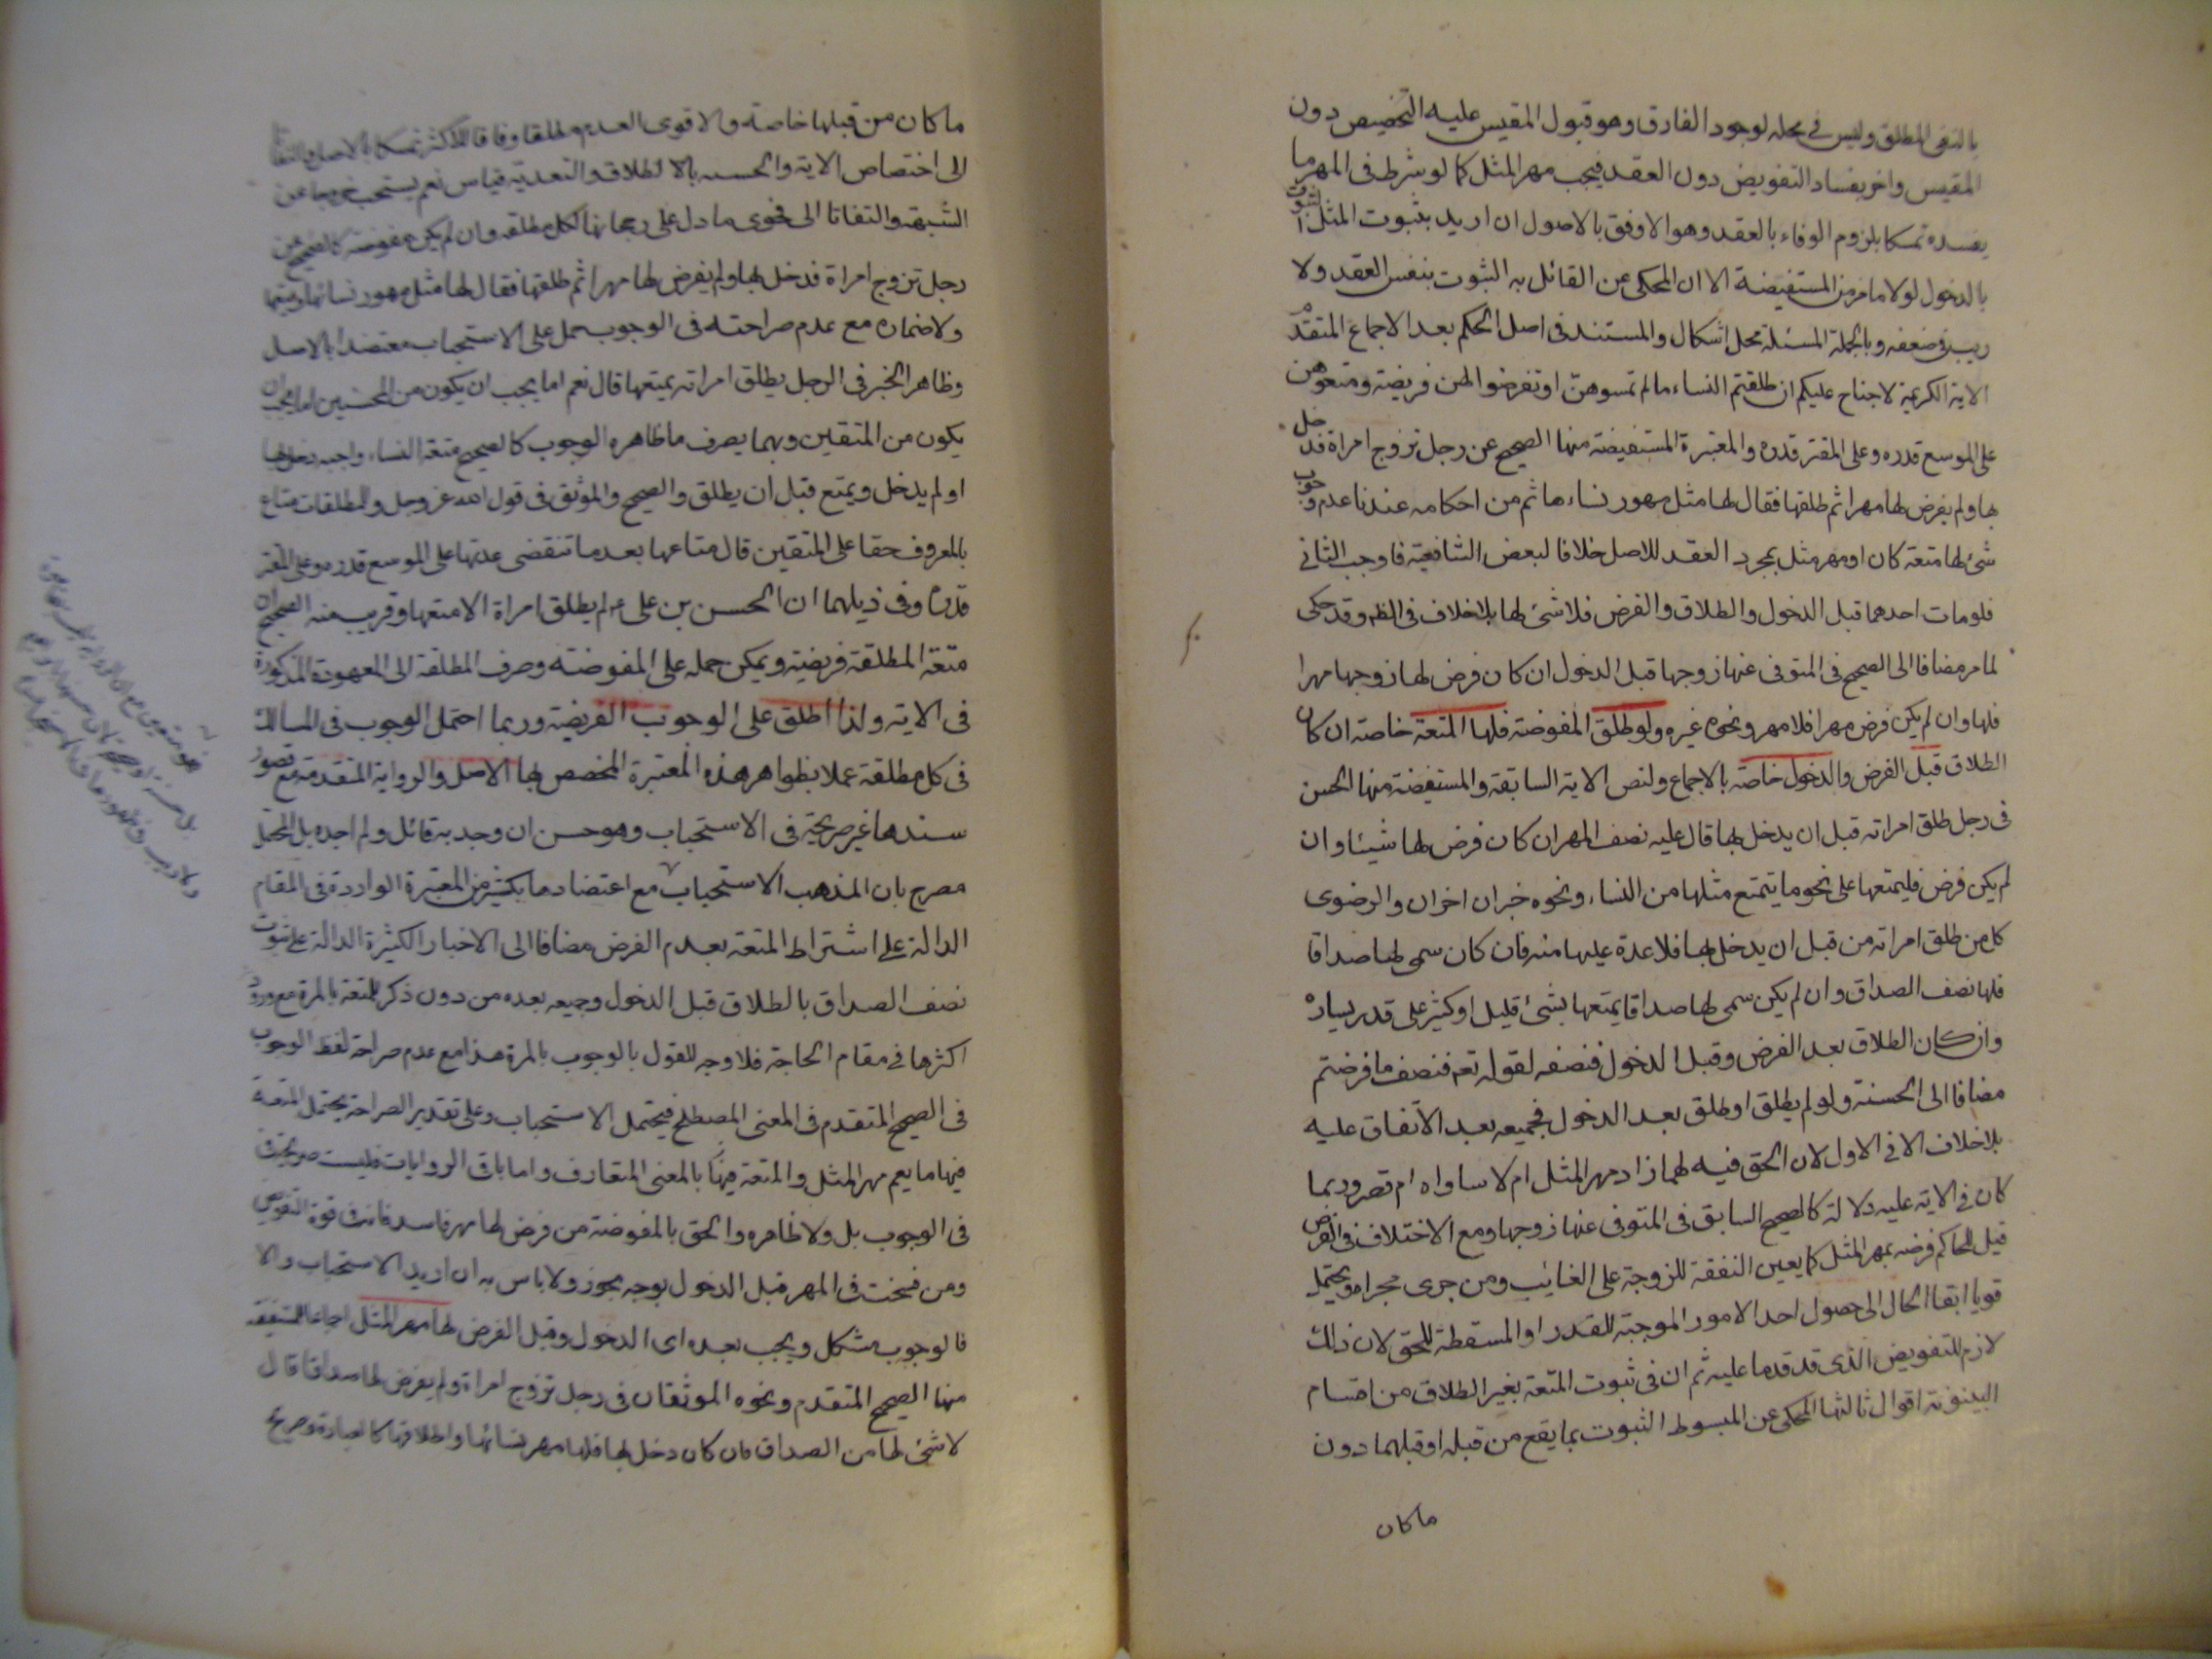 بالنفى المطلق وليس فى محله لوجود الفارق وهو قبول المقيس عليه التخصيص دون
المقيس واخر بفساد التفويض دون العقد فيجب مهر المثل كما لو شرط فى المهر ما
يفسده تمسكا بلزوم الوفاء بالعقد وهو الاوفق بالاصول ان اريد بثبوت المثل الثبوت
بالدخول لولا ما مر من المستفيضة الا ان المحكى عن القائل به الثبوت بنفس العقد ولا
ريب فى ضعفه وبالجملة المسئلة محل اشكال والمستند فى اصل الحكم بعد الاجماع المتقدم
الاية الكريمة لا جناح عليكم ان طلقتم النساء ما لم تمسوهن او تفرضوا لهن فريضة ومتعوهن
على الموسع قدره وعلى المقتر قدره والمعتبرة المستفيضة منها الصحيح عن رجل تزوج امراة فدخل
بها ولم يفرض لها مهرا ثم طلقها فقال لها مثل مهور نساءها ثم من احكامه عندنا عدم وجوب
شئ لها متعة كان او مهر مثل بمجرد العقد للاصل خلافا لبعض الشافعية فاوجب الثانى
فلو مات احدهما قبل الدخول والطلاق والفرض فلا شئ لها بلا خلاف فى الظه وقد حكى
لما مر مضافا الى الصحيح فى المتوفى عنها زوجها قبل الدخول ان كان فرض لها زوجها مهرا
فلها وان لم يكن فرض مهرا فلا مهر ونحوه غيره ولو طلق المفوضة فلها المتعة خاصة ان كان
الطلاق قبل الفرض والدخول خاصة بالاجماع ولنص الاية السابقة والمستفيضة منها الحسن
فى رجل طلق امراته قبل ان يدخل بها قال عليه نصف المهر ان كان فرض لها شيئا وان
لم يكن فرض فليمتعها على نحو ما يتمتع مثلها من النساء ونحوه خبران اخران والرضوى
كل من طلق امراته من قبل ان يدخل بها فلا عدة عليها منه فان كان سمى لها صداقا
فلها نصف الصداق وان لم يكن سمى لها صداقا يمتعها بشئ قليل او كثير على قدر يساره
وان كان الطلاق بعد الفرض وقبل الدخول فنصفه لقوله تعه فنصف ما فرضتم
مضافا الى الحسنة ولو لم يطلق او طلق بعد الدخول فجميعه بعد الاتفاق عليه
بلا خلاف الا فى الاول لان الحق فيه لهما زاد مهر المثل ام لا ساواه ام قصر وربما
كان فى الاية عليه دلالة كالصحيح السابق فى المتوفى عنها زوجها ومع الاختلاف فى الفرض
قيل للحاكم فرضه بمهر المثل كما يعين النفقة للزوجة على الغائب ومن جرى مجراه ويحتمل
قويا ابقا الحال الى حصول احد الامور الموجبة للقدر او المسقطة للحق لان ذلك
لازم للتفويض الذى قد قدما عليه ثم ان فى ثبوت المتعة بغير الطلاق من اقسام
البينونة اقوال ثالثها المحكى عن المبسوط الثبوت بما يقع من قبله او قبلهما دون
ما كان
ما كان من قبلها خاصة والاقوى العدم مطلقا وفاقا للاكثر تمسكا بالاصل والتفاتا
الى اختصاص الاية والحسنه بالاطلاق والتعدية قياس نعم يستحب خروجا عن
الشبهة والتفاتا الى فحوى ما دل على رجحانها لكل مطلقه وان لم يكن مفوضه كالصحيح عن
رجل تزوج امراة فدخل بها ولم يفرض لها مهرا ثم طلقها فقال لها مثل مهور نسائها ويمتعها
ولا ضمان مع عدم صراحته فى الوجوب حمل على الاستحباب معتضدا بالاصل
وظاهر الخبر فى الرجل يطلق امراته يمتعها قال نعم اما يجب ان يكون من المحسنين اما يحب ان
يكون من المتقين وبهما يصرف ما ظاهره الوجوب كالصحيح متعة النساء واجبه دخل بها
او لم يدخل ويمتع قبل ان يطلق والصحيح والموثق فى قول الله عز وجل وللمطلقات متاع
بالمعروف حقا على المتقين قال متاعها بعد ما تنقضى عدتها على الموسع قدره وعلى المقتر
قدره وفى ذيلهما ان الحسن بن على ع لم يطلق امراة الا متعها وقريب منه الصحيح ان
متعة المطلقة فريضة ويمكن حمله على المفوضه وصرف المطلقة الى المعهودة المذكورة
فى الاية ولذا اطلق على الوجوب الفريضة وربما احتمل الوجوب فى المسالة
فى كل مطلقة عملا بظواهر هذه المعتبرة المخصص بها الاصل والرواية المتقدمة مع قصور
سندها غير صريحة فى الاستحباب وهو حسن ان وجد به قائل ولم اجده بل المحكى
مصرح بان المذهب الاستحباب مع اعتضادها بكثير من المعتبرة الواردة فى المقام
الدالة على اشتراط المتعة بعدم الفرض مضافا الى الاخبار الكثيرة الدالة على ثبوت
نصف الصداق بالطلاق قبل الدخول وجميعه بعده من دون ذكر للمتعة بالمرة مع ورود
اكثرها فى مقام الحاجة فلا وجه للقول بالوجوب بالمرة هذا مع عدم صراحة لفظ الوجوب
فى الصحيح المتقدم فى المعنى المصطلح فيحتمل الاستحباب وعلى تقدير الصراحة يحتمل المتعة
فيها ما يعم مهر المثل والمتعة فيها بالمعنى المتعارف واما باقى الروايات فليست صريحة
فى الوجوب بل ولا ظاهره والحق بالمفوضة من فرض لها مهر فاسد فانه فى قوة التفويض
ومن فسخت فى المهر قبل الدخول بوجه يجوز ولا باس به ان اريد الاستحباب والا
فالوجوب مشكل ويجب بعده اى الدخول وقبل الفرض لها مهر المثل اجماعا للمستفيضة
منها الصحيح المتقدم ونحوه الموثقان فى رجل تزوج امراة ولم يفرض لها صداقا قال
لا شئ لها من الصداق فان كان دخل بها فلها مهر نسائها واطلاقها كالعبارة وصريح